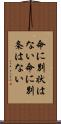 命に別状は
ない命に別
条はない